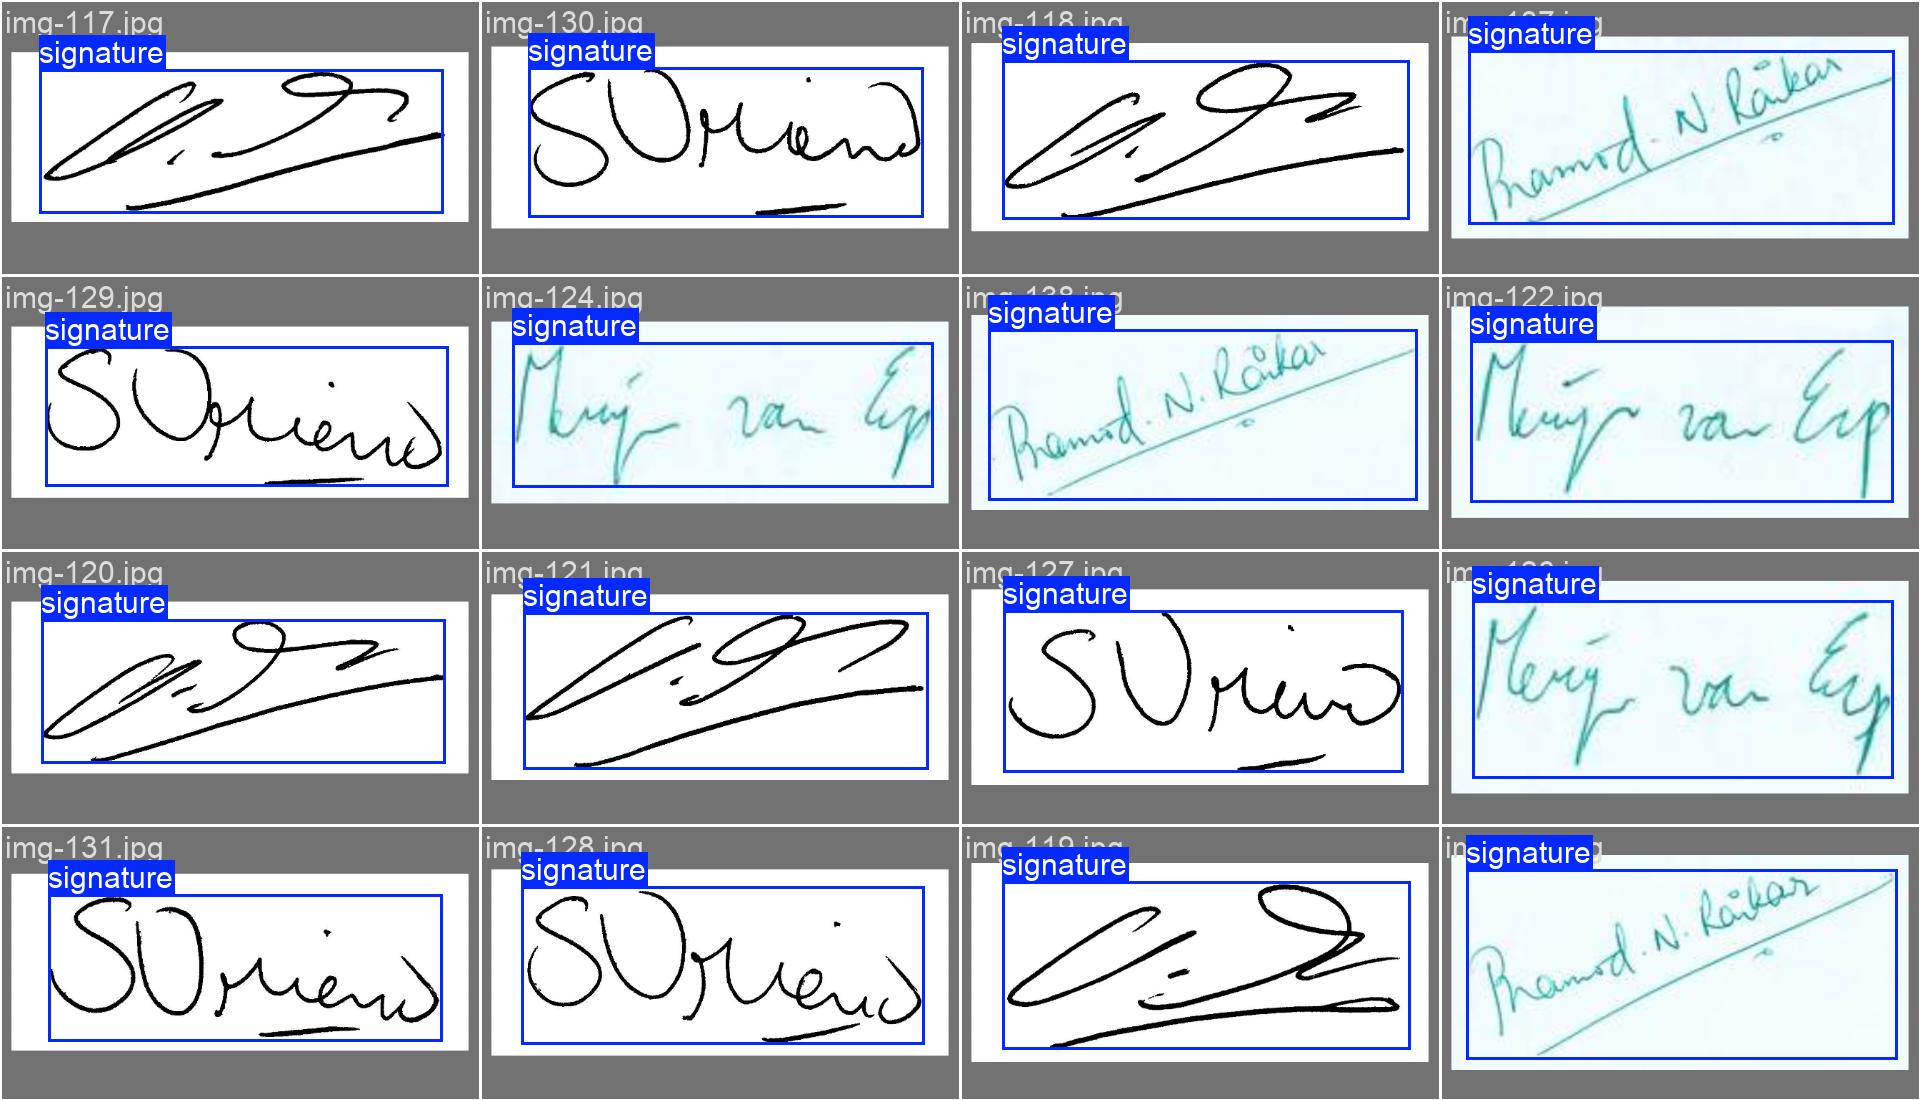 img-117.jpg
signature
img-130.jpg
signature
SVriend
img-118.jpg
signature
signature
Pramod. N. Råikar
img-129.jpg
signature
SVriend
img-124.jpg
signature
Merijn van Erp
img-138.jpg
signature
Pramod. N. Råikar
img-122.jpg
signature
Merijn van Erp
img-120.jpg
signature
img-121.jpg
signature
img-127.jpg
signature
SVriend
signature
Merijn van Erp
img-131.jpg
signature
SVriend
img-128.jpg
signature
SVriend
img-119.jpg
signature
signature
Pramod. N. Råikar